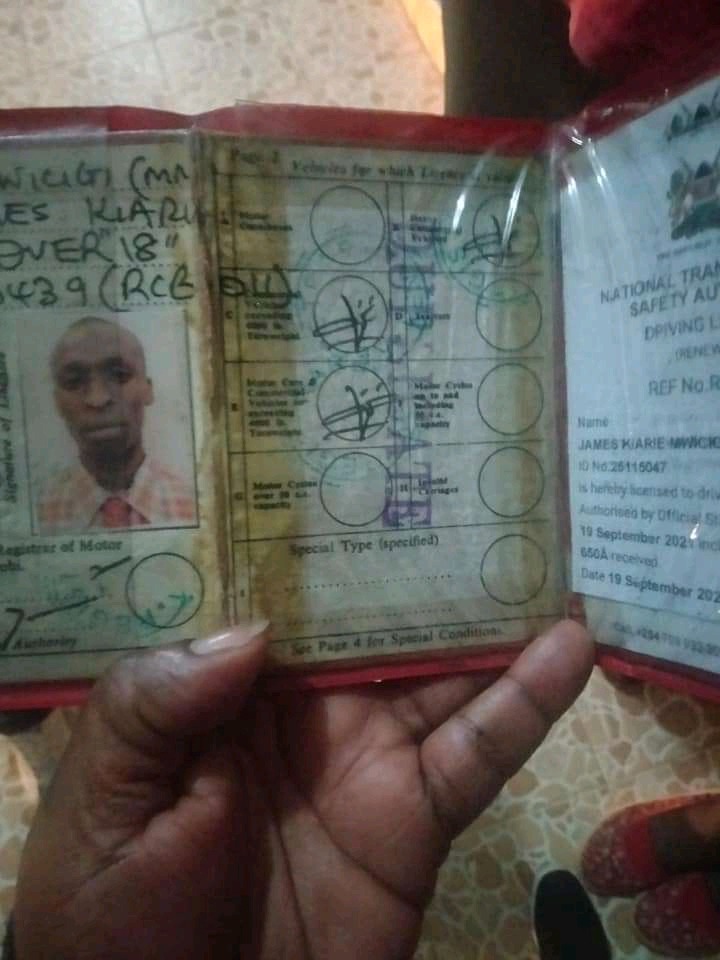 WICIGI (MR
ES KIARIE
OVER 18"
439 (RCE
Signature of
Registrar of Motor
obi.
Authority
Page 2
Vehicles for which Licence
A Motor Omnibuses
B Heavy Commercial Vehicles
C
exceeding
4000 lb.
Tareweight
D Tractors
DUPLICATE
E Motor Cars &
Commercial
Vehicles not
exceeding
4000 lb.
Tareweight
Motor Cycles
up to and
including
50 c.c.
capacity
G Motor Cycles
over 50 c.c.
capacity
H Invalid
Carriages
Special Type (specified)
I
See Page 4 for Special Conditions.
NATIONAL TRAN
SAFETY AU
DRIVING L
(RENEW
REF No.R
Name
JAMES KIARIE MWICIG
ID No.25115047
is hereby licensed to driv
Authorised by Official S
19 September 2021 incl
650Â received
Date 19 September 202